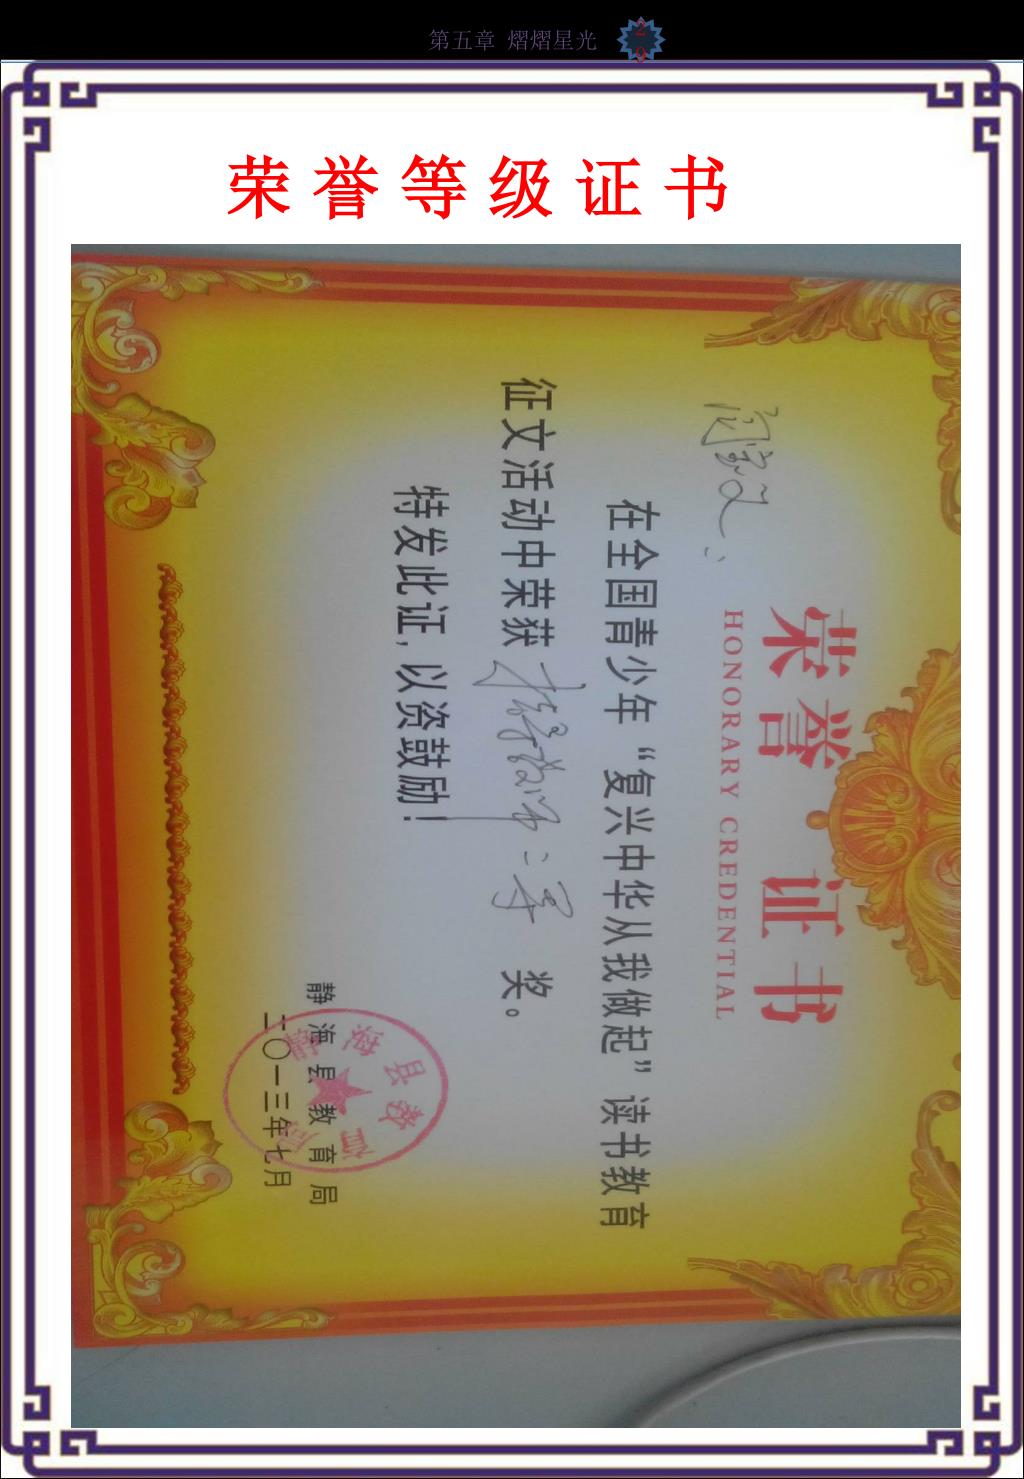 第五章 熠熠星光
荣誉等级证书
荣誉证书
HONORARY CREDENTIAL
在全国青少年“复兴中华从我做起”读书教育
征文活动中荣获指导教师二等 奖。
特发此证,以资鼓励!
静海县教育局
二〇一三年七月
静海县教育局